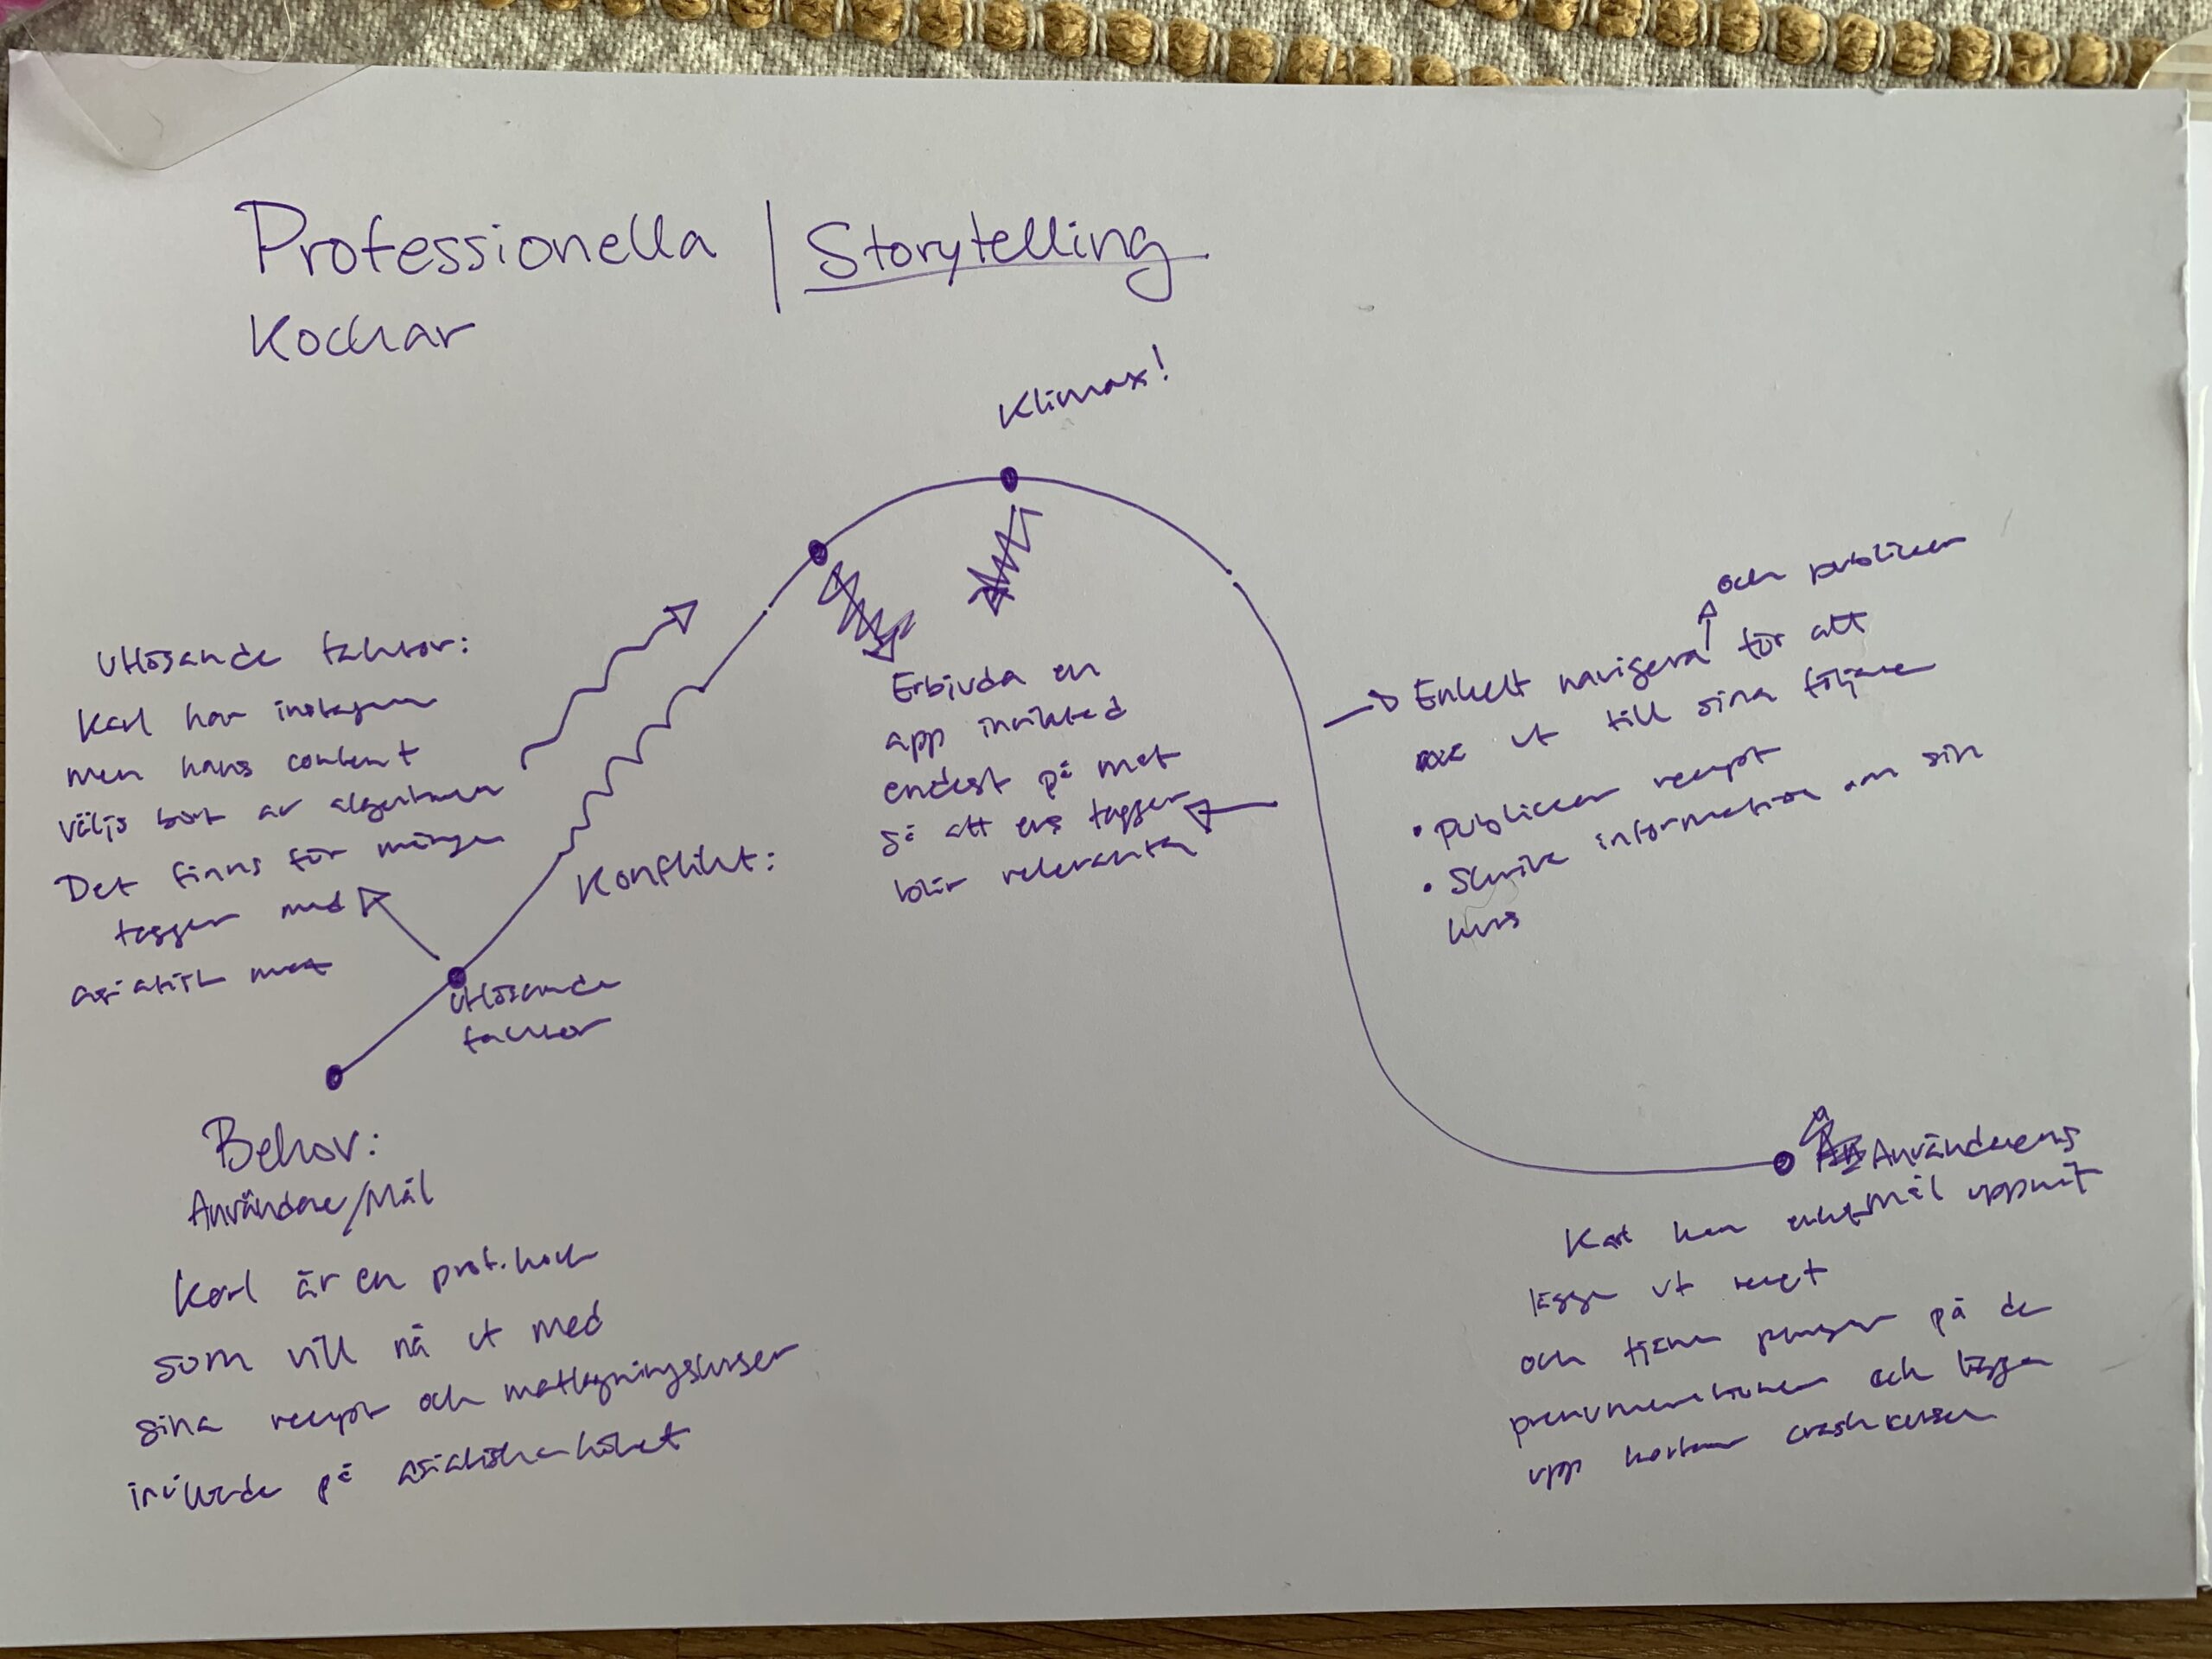 Professionella | Storytelling
Kockar
Klimax!
Utlösande faktor:
Karl har instagram
men hans content
väljs bort av algoritmen
Det finns för många
taggar med
asiatisk mat
Utlösande
faktor
Konflikt:
Erbjuda en
app inriktad
endast på mat
så att ens taggar
blir relevanta
och publicera
Enkelt navigera för att
nå ut till sina följare
• Publicera recept
• Skriva information om sin
kurs
Behov:
Användare/Mål
Karl är en prof. kock
som vill nå ut med
sina recept och matlagningskurser
inriktade på asiatiska köket
Användarens
mål uppnåt
Karl kan enkelt
lägga ut recept
och tjäna pengar på de
prenumerationer och lägga
upp kortare crashkurser